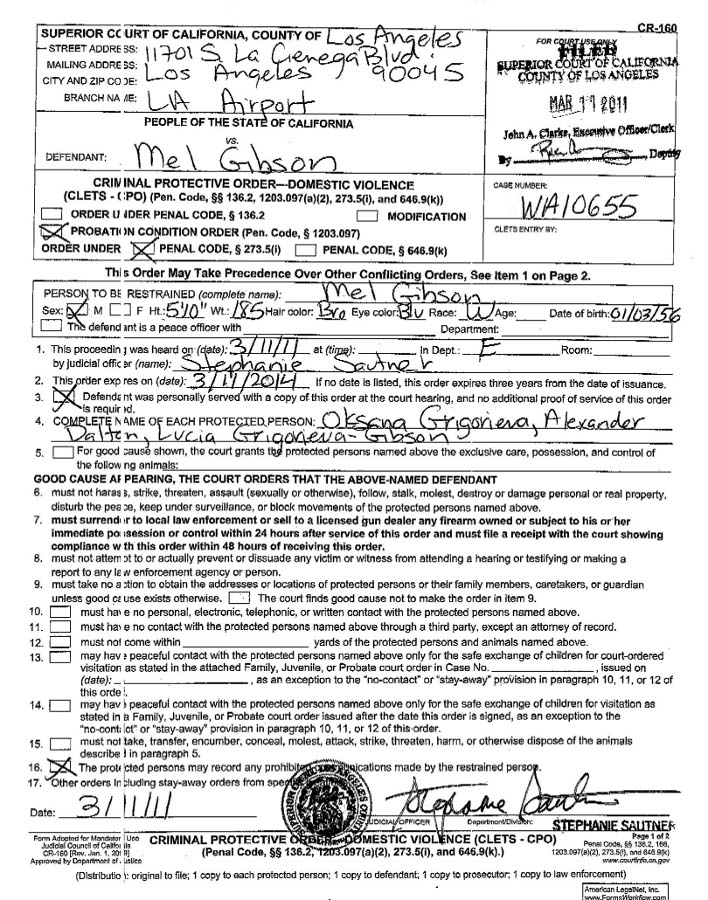 CR-160
SUPERIOR COURT OF CALIFORNIA, COUNTY OF Los Angeles
STREET ADDRESS: 11701 S. La Cienega Blvd.
MAILING ADDRESS:
CITY AND ZIP CODE: Los Angeles 90045
BRANCH NAME: LA Airport
FOR COURT USE ONLY
FILED
SUPERIOR COURT OF CALIFORNIA
COUNTY OF LOS ANGELES
MAR 11 2011
John A. Clarke, Executive Officer/Clerk
By Deputy
PEOPLE OF THE STATE OF CALIFORNIA
vs.
DEFENDANT: Mel Gibson
CRIMINAL PROTECTIVE ORDER—DOMESTIC VIOLENCE
(CLETS - CPO) (Pen. Code, §§ 136.2, 1203.097(a)(2), 273.5(i), and 646.9(k))
ORDER UNDER PENAL CODE, § 136.2 MODIFICATION
PROBATION CONDITION ORDER (Pen. Code, § 1203.097)
ORDER UNDER PENAL CODE, § 273.5(i) PENAL CODE, § 646.9(k)
CASE NUMBER:
WA10655
CLETS ENTRY BY:
This Order May Take Precedence Over Other Conflicting Orders, See Item 1 on Page 2.
PERSON TO BE RESTRAINED (complete name): Mel Gibson
Sex: M F Ht.: 5'10" Wt.: 185 Hair color: Bro Eye color: Blu Race: W Age: Date of birth: 01/03/56
The defendant is a peace officer with Department:
1. This proceeding was heard on (date): 3/11/11 at (time): In Dept.: E Room:
by judicial officer (name): Stephanie Sautner
2. This order expires on (date): 3/11/2014 If no date is listed, this order expires three years from the date of issuance.
3. Defendant was personally served with a copy of this order at the court hearing, and no additional proof of service of this
order is required.
4. COMPLETE NAME OF EACH PROTECTED PERSON: Oksana Grigorieva, Alexander
Dalton, Lucia Grigorieva-Gibson
5. For good cause shown, the court grants the protected persons named above the exclusive care, possession, and control of
the following animals:
GOOD CAUSE APPEARING, THE COURT ORDERS THAT THE ABOVE-NAMED DEFENDANT
6. must not harass, strike, threaten, assault (sexually or otherwise), follow, stalk, molest, destroy or damage personal or real property,
disturb the peace, keep under surveillance, or block movements of the protected persons named above.
7. must surrender to local law enforcement or sell to a licensed gun dealer any firearm owned or subject to his or her
immediate possession or control within 24 hours after service of this order and must file a receipt with the court showing
compliance with this order within 48 hours of receiving this order.
8. must not attempt to or actually prevent or dissuade any victim or witness from attending a hearing or testifying or making a
report to any law enforcement agency or person.
9. must take no action to obtain the addresses or locations of protected persons or their family members, caretakers, or guardian
unless good cause exists otherwise. The court finds good cause not to make the order in item 9.
10. must have no personal, electronic, telephonic, or written contact with the protected persons named above.
11. must have no contact with the protected persons named above through a third party, except an attorney of record.
12. must not come within yards of the protected persons and animals named above.
13. may have peaceful contact with the protected persons named above only for the safe exchange of children for court-ordered
visitation as stated in the attached Family, Juvenile, or Probate court order in Case No. , issued on
(date): , as an exception to the "no-contact" or "stay-away" provision in paragraph 10, 11, or 12 of
this order.
14. may have peaceful contact with the protected persons named above only for the safe exchange of children for visitation as
stated in a Family, Juvenile, or Probate court order issued after the date this order is signed, as an exception to the
"no-contact" or "stay-away" provision in paragraph 10, 11, or 12 of this order.
15. must not take, transfer, encumber, conceal, molest, attack, strike, threaten, harm, or otherwise dispose of the animals
described in paragraph 5.
16. The protected persons may record any prohibited communications made by the restrained person.
17. Other orders including stay-away orders from
Date: 3/11/11
JUDICIAL OFFICER Department/Division:
STEPHANIE SAUTNER
Form Adopted for Mandatory Use
Judicial Council of California
CR-160 [Rev. Jan. 1, 20
Approved by Department of Justice
CRIMINAL PROTECTIVE ORDER—DOMESTIC VIOLENCE (CLETS - CPO)
(Penal Code, §§ 136.2, 1203.097(a)(2), 273.5(i), and 646.9(k).)
Page 1 of 2
Penal Code, §§ 136.2, 166,
1203.097(a)(2), 273.5(i), and 646.9(k)
www.courtinfo.ca.gov
(Distribution: original to file; 1 copy to each protected person; 1 copy to defendant; 1 copy to prosecutor; 1 copy to law enforcement)
American LegalNet, Inc.
www.FormsWorkflow.com